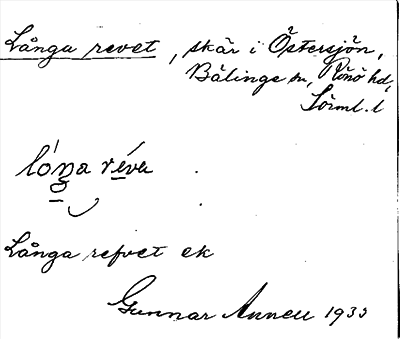 Långa revet, skär i Östersjön,
Bälinge sn, Rönö hd,
Sörml. l
lóŋa révə
Långa refvet ek
Gunnar Annell 1933